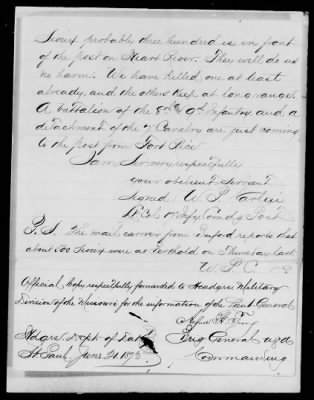 Sioux, probable three hundred is in front
of the post on Heart River. They will do us
no harm. We have killed one at least
already, and the others keep at long range.
A battalion of the 8th & 9th Infantry and a
detachment of the 7 Cavalry are just coming
to the post from Fort Rice
I am, Sir very respectfully
your obedient servant
signed, W. P. Carlin
Lt Col 17 Infy, Comdg Post
P.S. The mail carrier from Buford reports that
about 500 Sioux were at Berthold on Thursday last
W. P. C
Official Copy respectfully forwarded to Headqrs Military
Division of the Missouri for the information of the Lieut General
Alfred H. Terry
Hdqrs. Dept. of Dak Brig General USA
St Paul, June 21 1873 Commanding